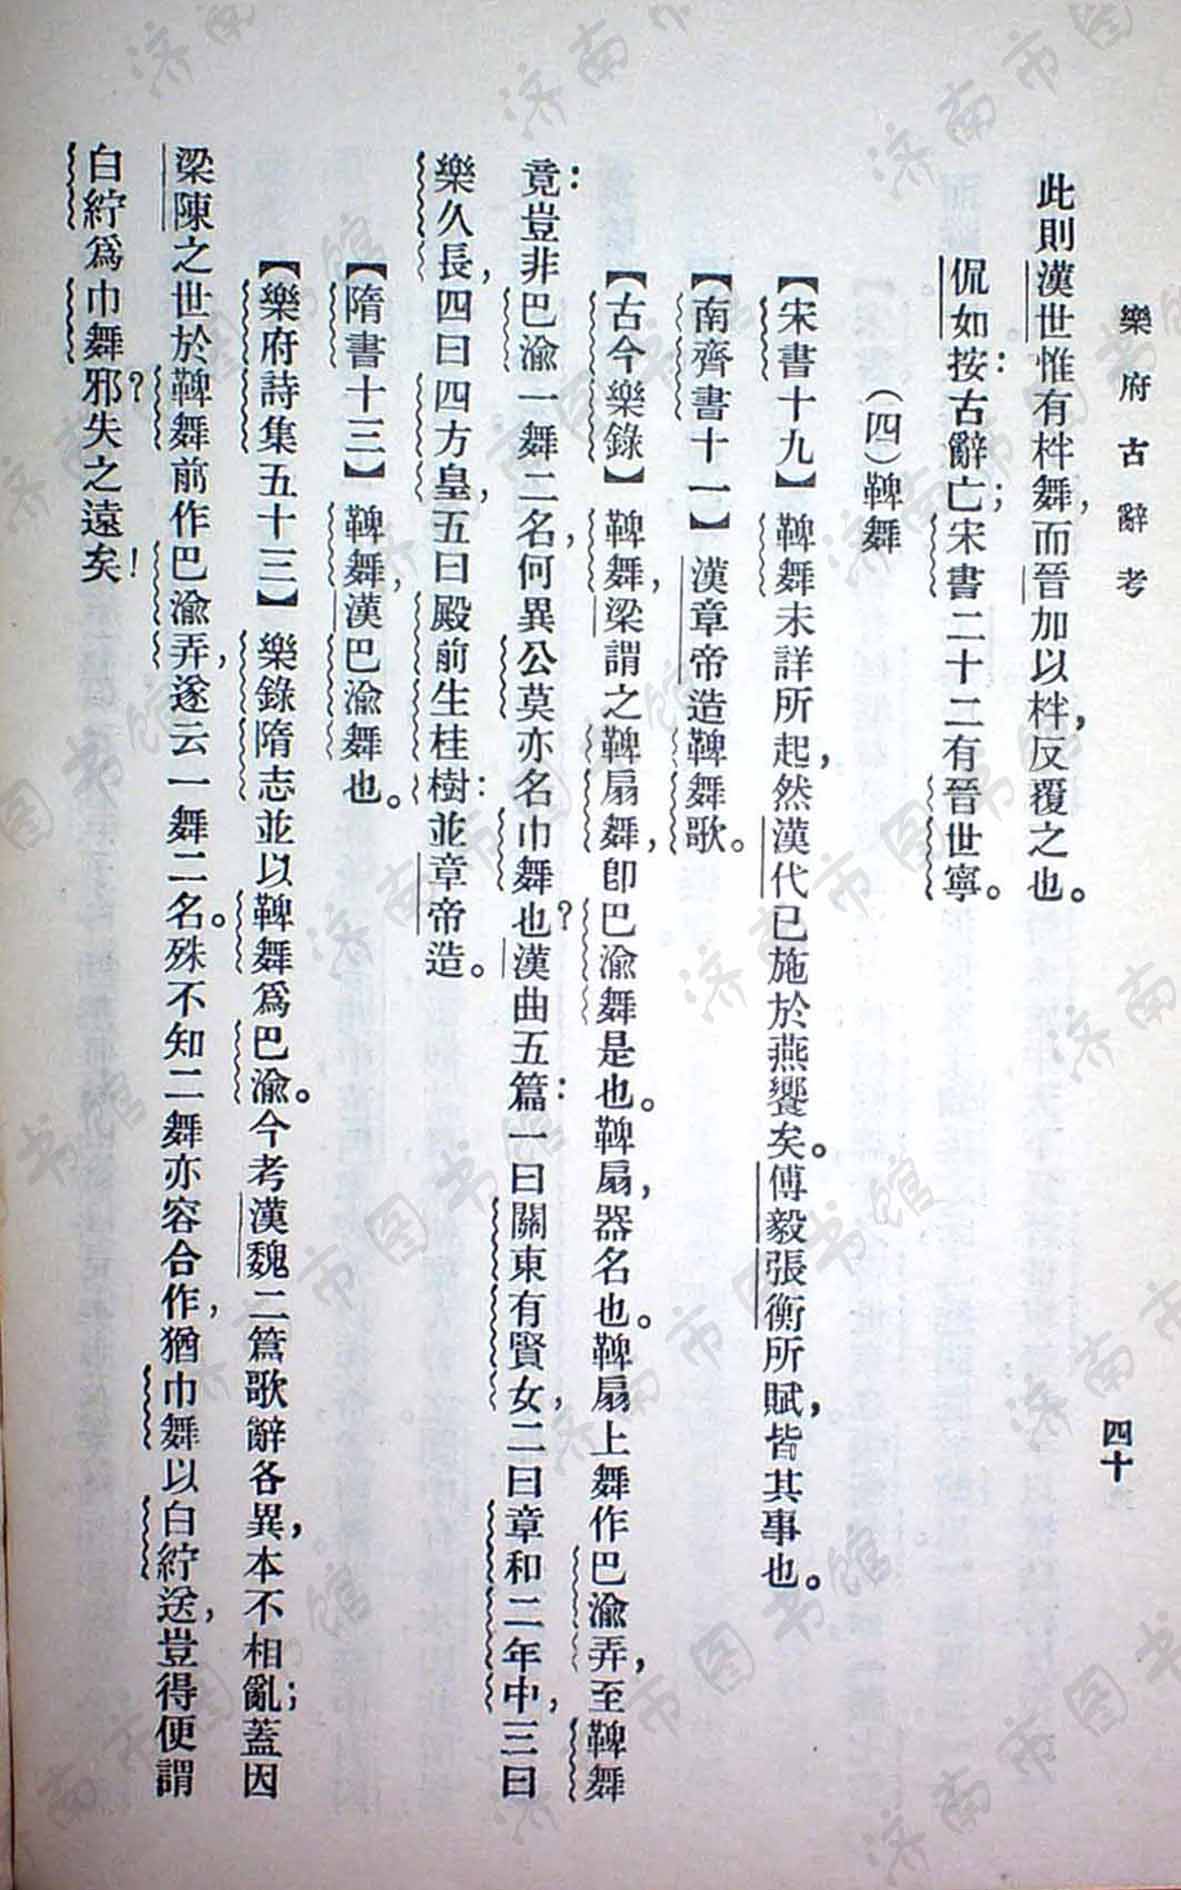 樂府古辭考
四十
此則漢世惟有柈舞，而晉加以柈，反覆之也。
侃如按：古辭亡；宋書二十二有晉世寧。
（四）鞞舞
【宋書十九】鞞舞未詳所起，然漢代已施於燕饗矣。傅毅張衡所賦，皆其事也。
【南齊書十一】漢章帝造鞞舞歌。
【古今樂錄】鞞舞，梁謂之鞞扇舞，卽巴渝舞是也。鞞扇，器名也。鞞扇上舞作巴渝弄，至鞞舞
竟：豈非巴渝一舞二名，何異公莫亦名巾舞也？漢曲五篇：一曰關東有賢女，二曰章和二年中，三曰
樂久長，四曰四方皇，五曰殿前生桂樹：並章帝造。
【隋書十三】鞞舞，漢巴渝舞也。
【樂府詩集五十三】樂錄隋志並以鞞舞爲巴渝。今考漢魏二篇歌辭各異，本不相亂；蓋因
梁陳之世於鞞舞前作巴渝弄，遂云一舞二名。殊不知二舞亦容合作，猶巾舞以白紵送，豈得便謂
白紵爲巾舞邪？失之遠矣！
济南市图书馆